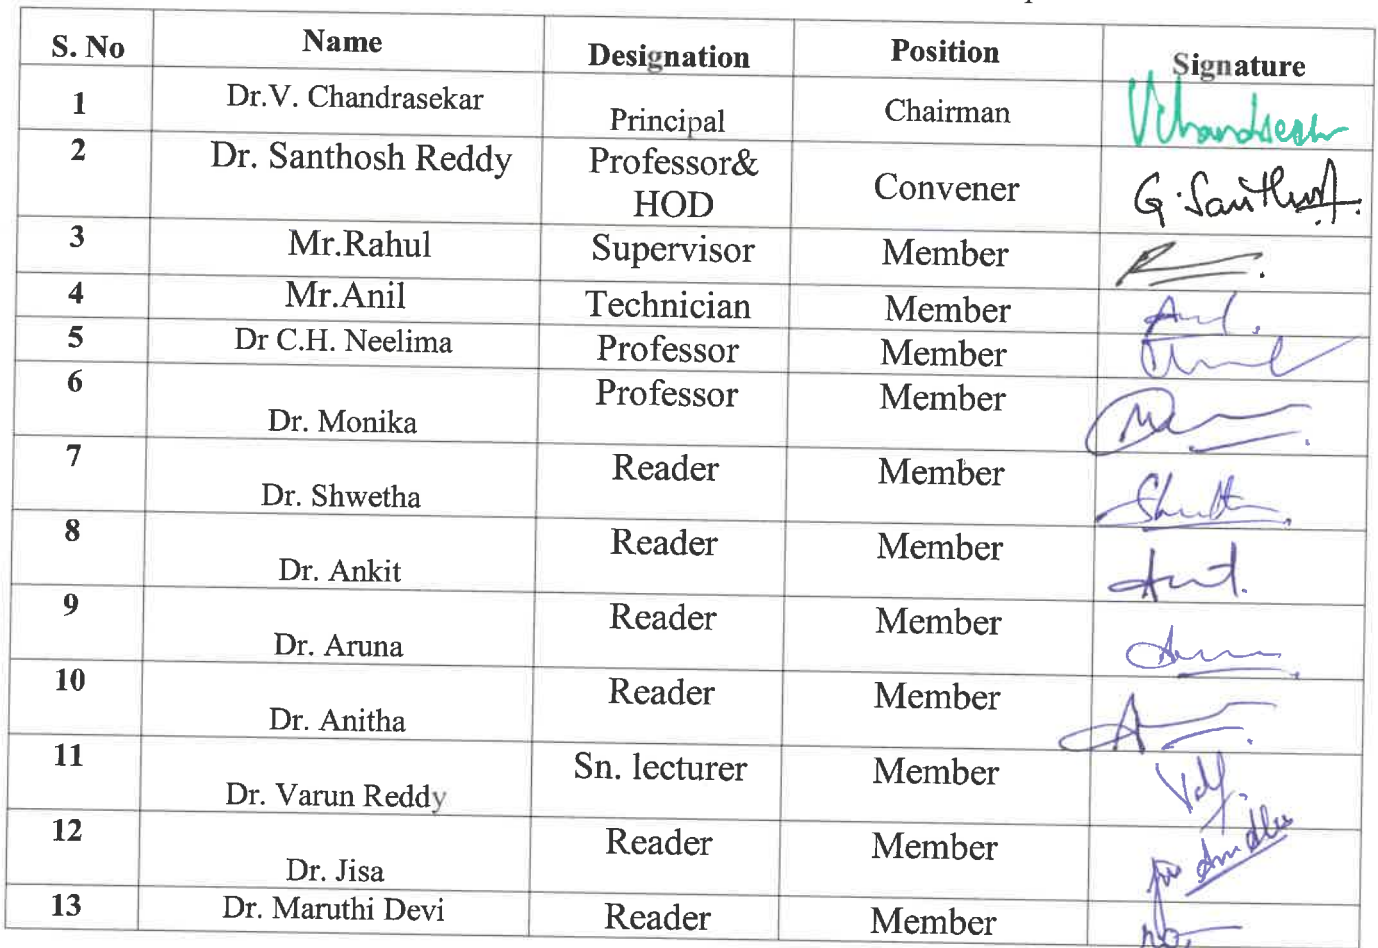 S. No Name Designation Position Signature
1 Dr.V. Chandrasekar Principal Chairman VChandrasekar
2 Dr. Santhosh Reddy Professor& Convener G.Santhosh
HOD
3 Mr.Rahul Supervisor Member
4 Mr.Anil Technician Member
5 Dr C.H. Neelima Professor Member
6 Dr. Monika Professor Member
7 Dr. Shwetha Reader Member
8 Dr. Ankit Reader Member
9 Dr. Aruna Reader Member
10 Dr. Anitha Reader Member
11 Dr. Varun Reddy Sn. lecturer Member
12 Dr. Jisa Reader Member
13 Dr. Maruthi Devi Reader Member